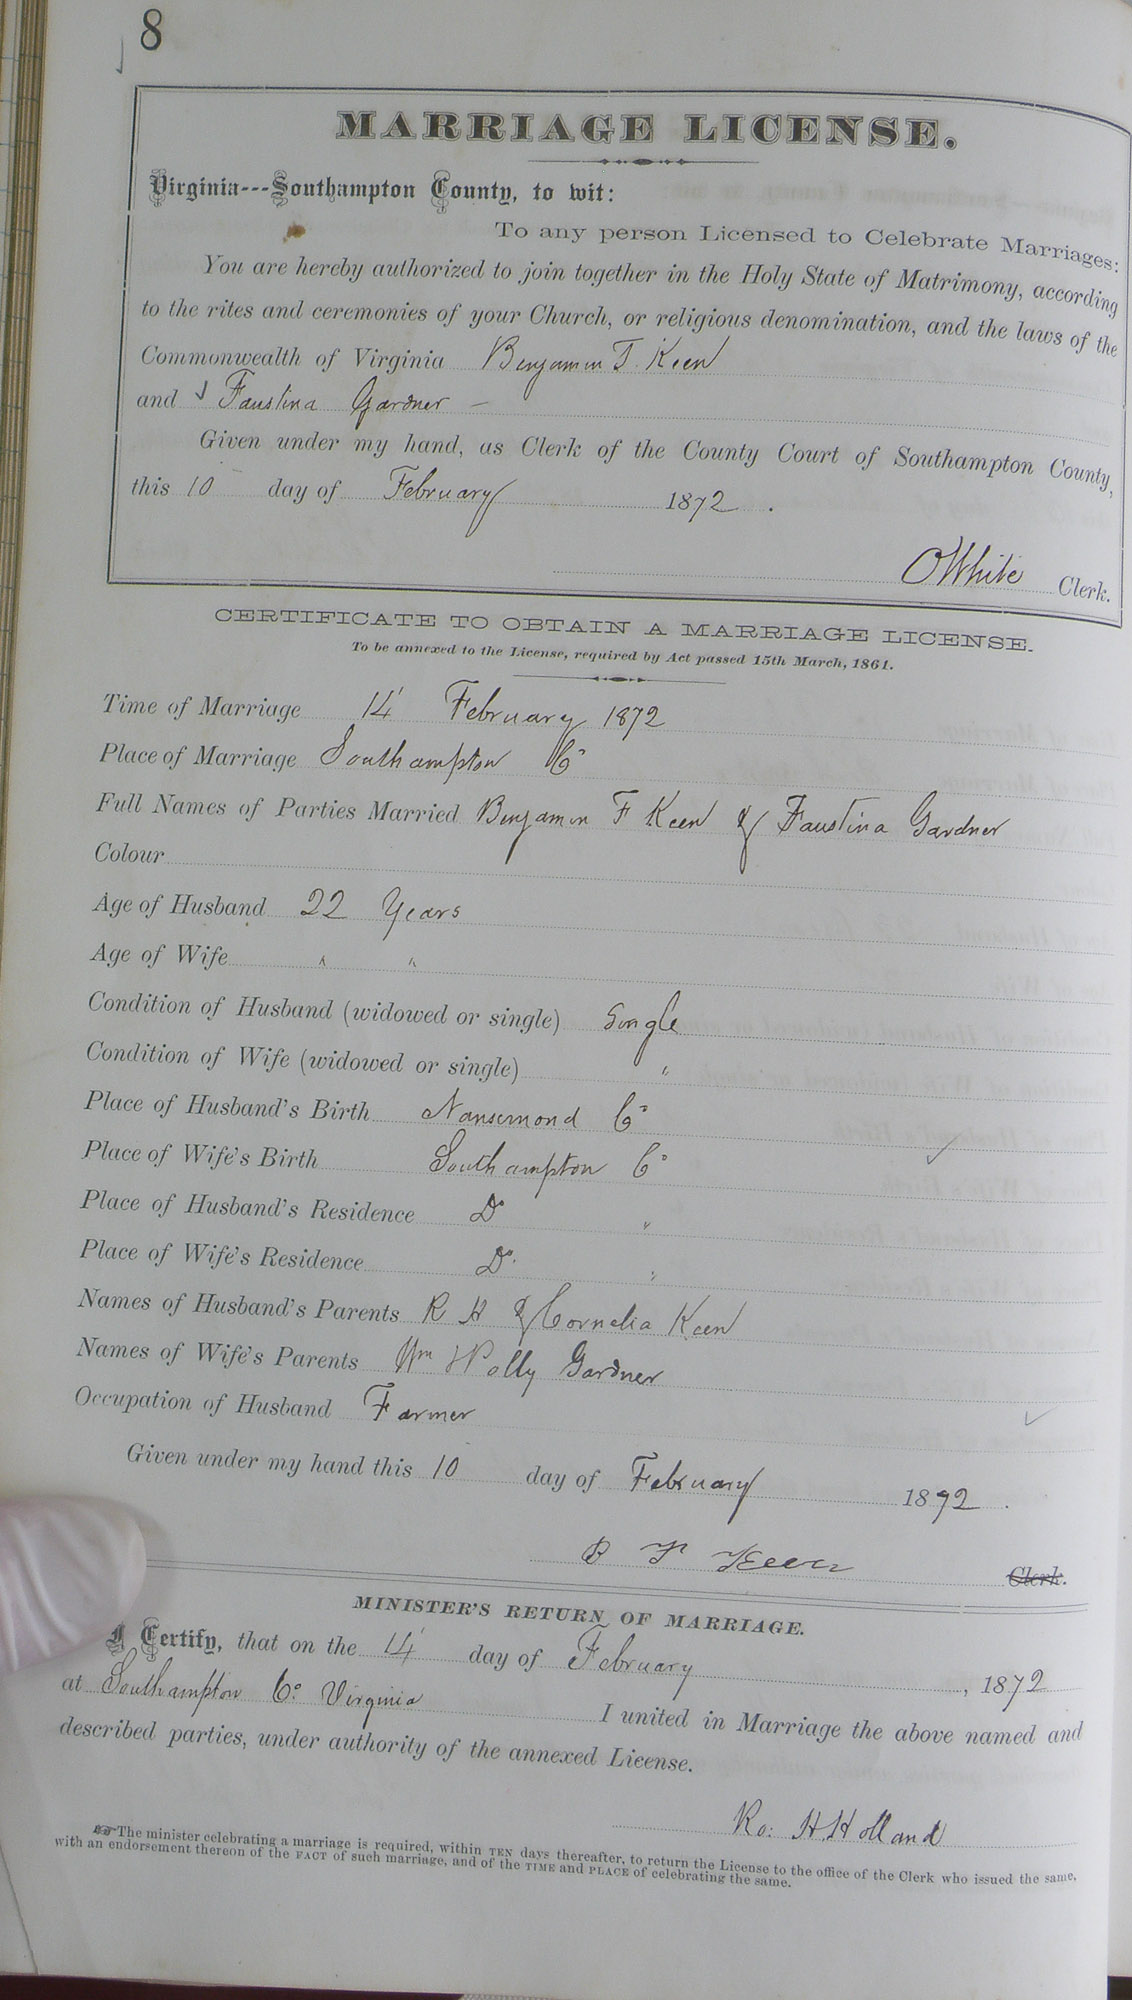 8
MARRIAGE LICENSE.
Virginia---Southampton County, to wit:
To any person Licensed to Celebrate Marriages:
You are hereby authorized to join together in the Holy State of Matrimony, according
to the rites and ceremonies of your Church, or religious denomination, and the laws of the
Commonwealth of Virginia Benjamin F. Keen
and Faustina Gardner -
Given under my hand, as Clerk of the County Court of Southampton County,
this 10 day of February 1872.
O White Clerk.
CERTIFICATE TO OBTAIN A MARRIAGE LICENSE.
To be annexed to the License, required by Act passed 15th March, 1861.
Time of Marriage 14 February 1872
Place of Marriage Southampton Co
Full Names of Parties Married Benjamin F Keen & Faustina Gardner
Colour
Age of Husband 22 Years
Age of Wife " "
Condition of Husband (widowed or single) Single
Condition of Wife (widowed or single) "
Place of Husband's Birth Nansemond Co
Place of Wife's Birth Southampton Co
Place of Husband's Residence Do "
Place of Wife's Residence Do "
Names of Husband's Parents R H & Cornelia Keen
Names of Wife's Parents Wm & Polly Gardner
Occupation of Husband Farmer
Given under my hand this 10 day of February 1872.
B F Keen Clerk.
MINISTER'S RETURN OF MARRIAGE.
I Certify, that on the 14 day of February, 1872
at Southampton Co. Virginia I united in Marriage the above named and
described parties, under authority of the annexed License.
Ro: H Holland
☞The minister celebrating a marriage is required, within TEN days thereafter, to return the License to the office of the Clerk who issued the same,
with an endorsement thereon of the FACT of such marriage, and of the TIME and PLACE of celebrating the same.